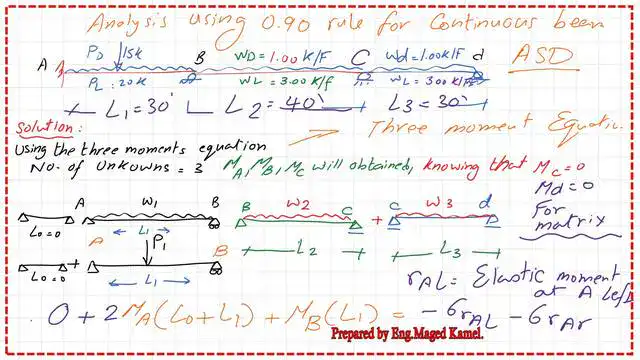 Analysis using 0.90 rule for Continuous beam
PD 15k B WD = 1.00 K/F C Wd = 1.00K/F d ASD
A
PL: 20K WL = 3.00 K/f WL = 3.00 K/F
L1 = 30' L2 = 40' L3 = 30'
Solution:
Three moment Equation
Using the three moments equation
No. of Unkowns = 3 MA, MB, MC will obtained, knowing that MC=0
Md=0
For
matrix
A W1 B B W2 C + C W3 d
L0=0 L1 L2 L3
A P1 B
L0=0 + L1
rAL = Elastic moment
at A Left
0 + 2MA(L0+L1) + MB(L1) = -6rAL - 6rAr
Prepared by Eng.Maged Kamel.